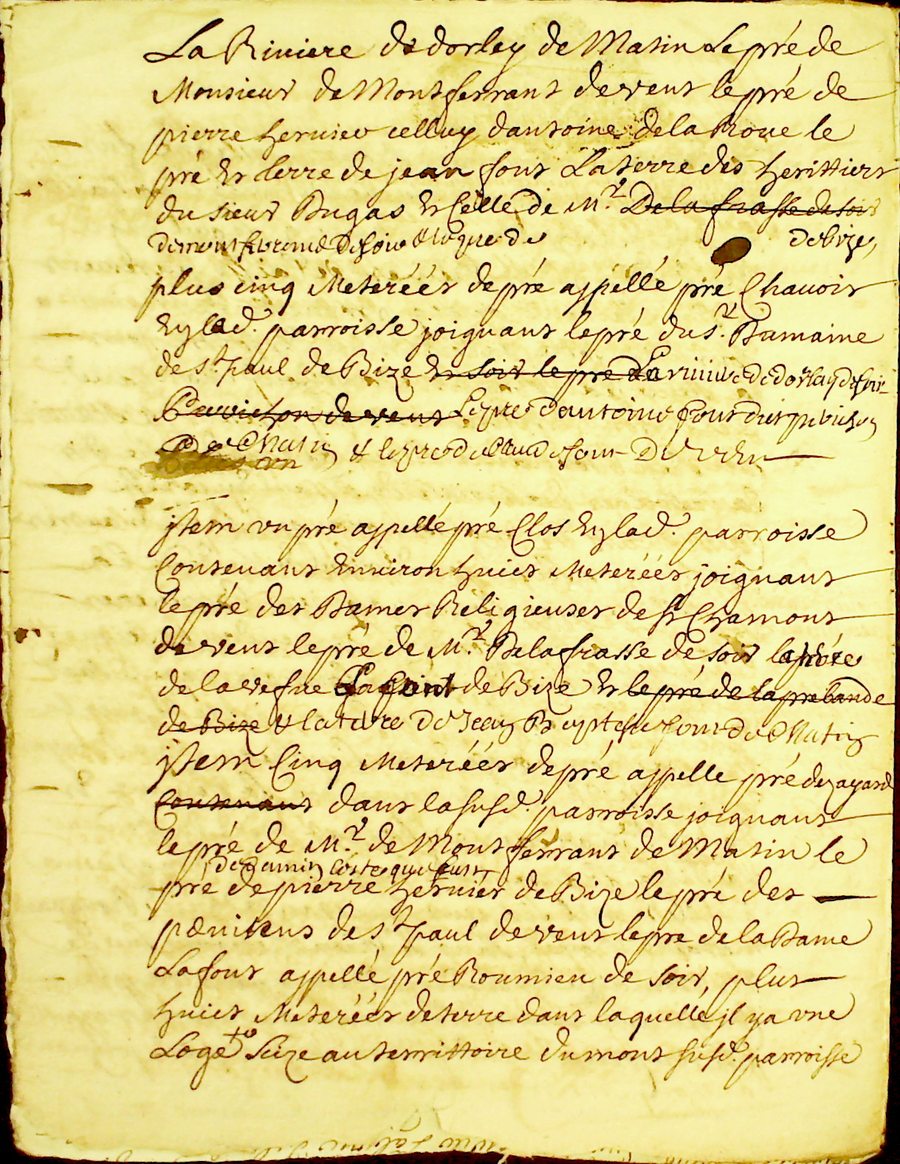 La Riviere de dorley de Matin Le pré de
Monsieur de Montferrant de vent le pré de
pierre hervier celluy d'antoine de la Roue le
pré et terre de jean four La terre des herittiers
du sieur Dugas et Celle de Mr. De la frasse de soir
de bize,
plus cinq Meterées de pré appellé pré Chavoir
en lad. parroisse joignant le pré du sr. Dumaine
de st paul de Bize et soir le pré La riviere de dorlay de soir
de vent Le pre d'antoine four dit
de Matin & le pre de four De vent
jtem vn pré appellé pré Clos en lad. parroisse
Contenant Environ huict Meterées joignant
le pré des Dames Religieuses de st Chamont
de vent le pré de Mr. Delafrasse de soir
de la vefve de Bize et le pré de la prebande
de Bize & la terre de Jean four de Matin
jtem Cinq Meterées de pré appelle pré de
Contenant dans la susd. parroisse joignant
le pré de Mr. de Montferrant de Matin le
pré de pierre hervier de Bize le pré des
pœnitens de st paul de vent le pre de la Dame
Lafour appellé pré Roumieu de soir, plus
huict Meterées de terre dans laquelle jl ya vne
Loge Size au territtoire du mont susd. parroisse